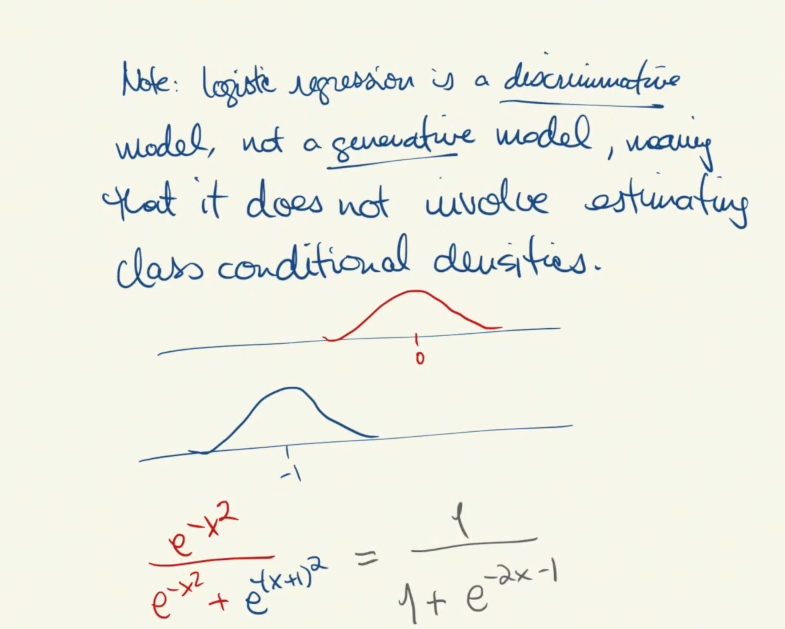 Note: logistic regression is a discriminative
model, not a generative model, meaning
that it does not involve estimating
class conditional densities.
0
-1
e^{-x^2} / (e^{-x^2} + e^{-(x+1)^2}) = 1 / (1 + e^{-2x-1})